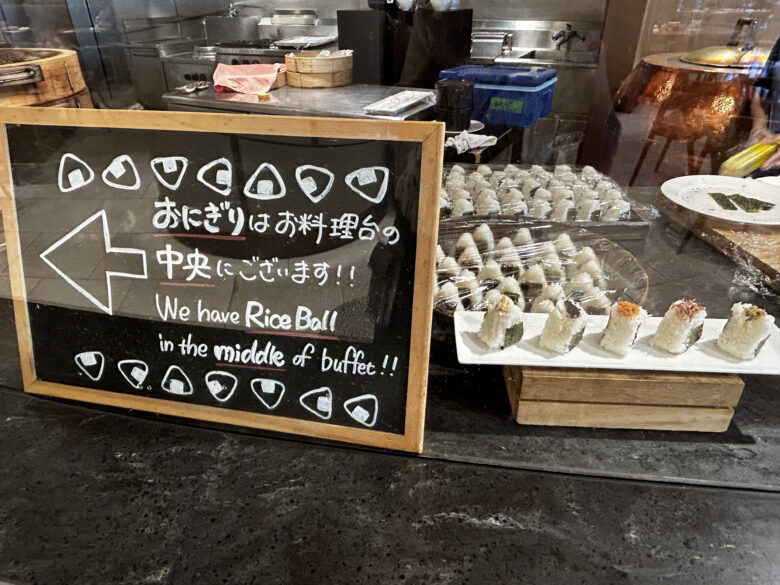 おにぎりはお料理台の
中央にございます!!
We have Rice Ball
in the middle of buffet!!